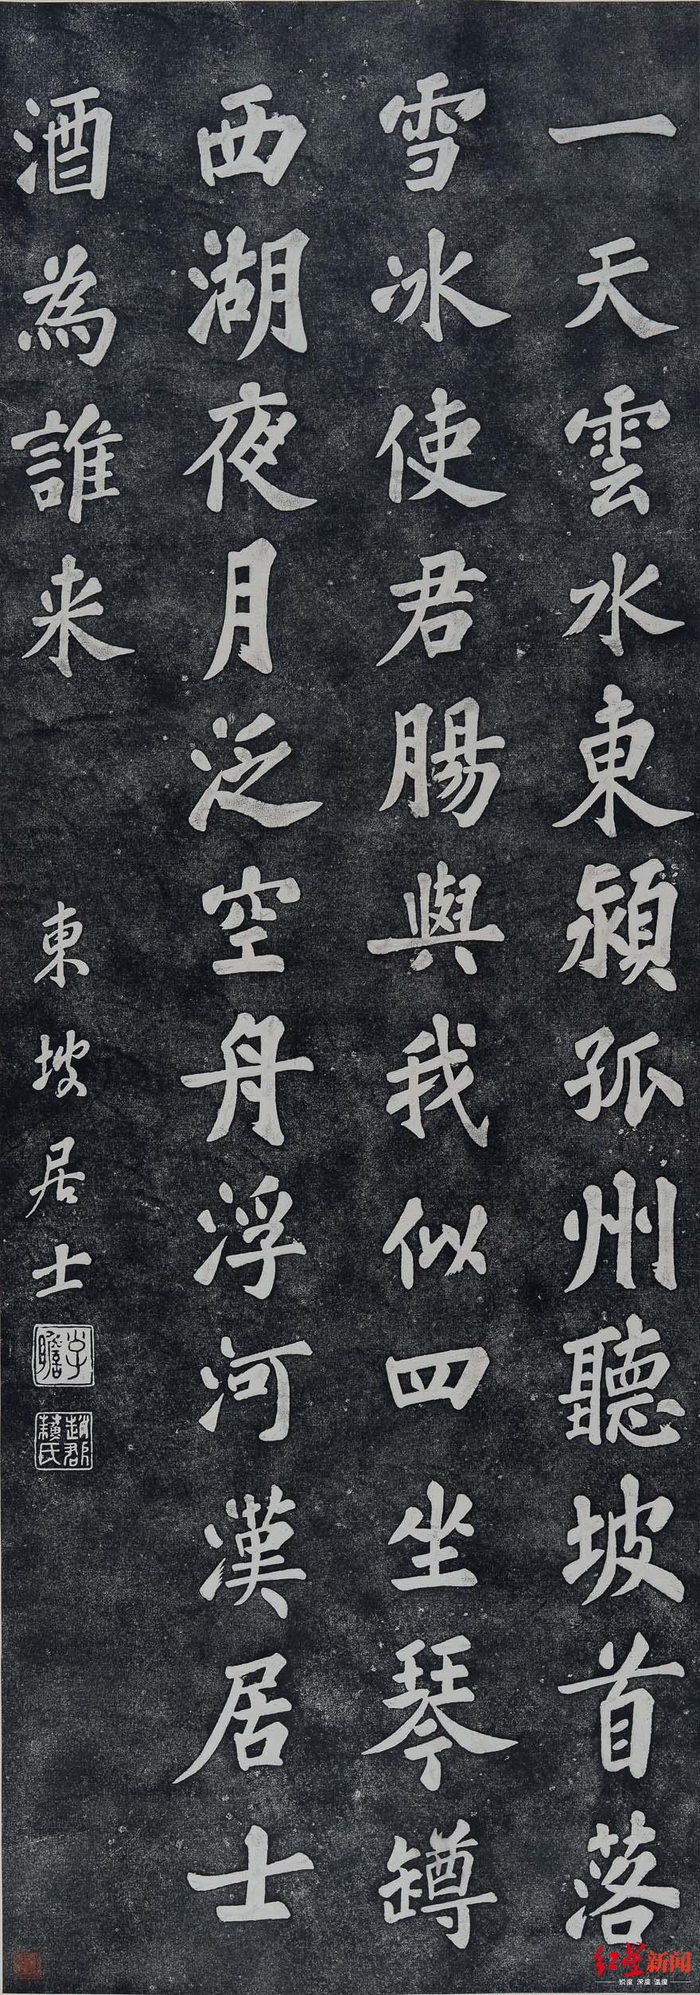 一天雲水東潁孤州聽坡首落
雪冰使君腸與我似四坐琴罇
西湖夜月泛空舟浮河漢居士
酒為誰来
東坡居士
子瞻
趙郡蘇氏
红星新闻
深度 温度